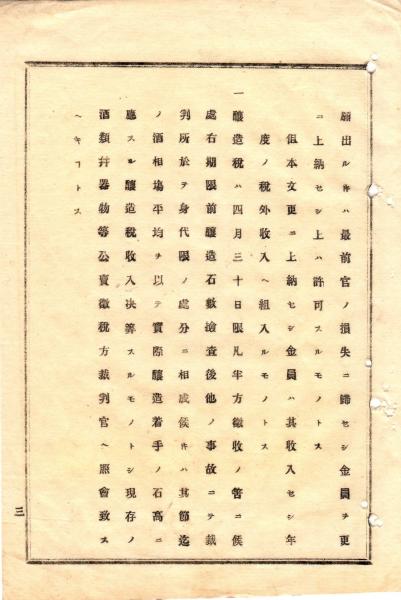 願出ルキハ最前官ノ損失ニ歸セシ金員ヲ更
ニ上納セシ上ハ許可スルモノトス
但本文更ニ上納セシ金員ハ其收入セシ年
度ノ税外收入ヘ組入ルモノトス
一釀造税ハ四月三十日限凡半方徴收ノ筈ニ候
處右期限前釀造石數檢查後他ノ事故ニテ裁
判所於テ身代限ノ處分ニ相成候キハ其節迄
ノ酒相塲平均ヲ以テ實際釀造着手ノ石高ニ
應スル釀造税收入决算スルモノトシ現存ノ
酒類幷器物等公賣徴税方裁判官ヘ照會致ス
ヘキコトス
三